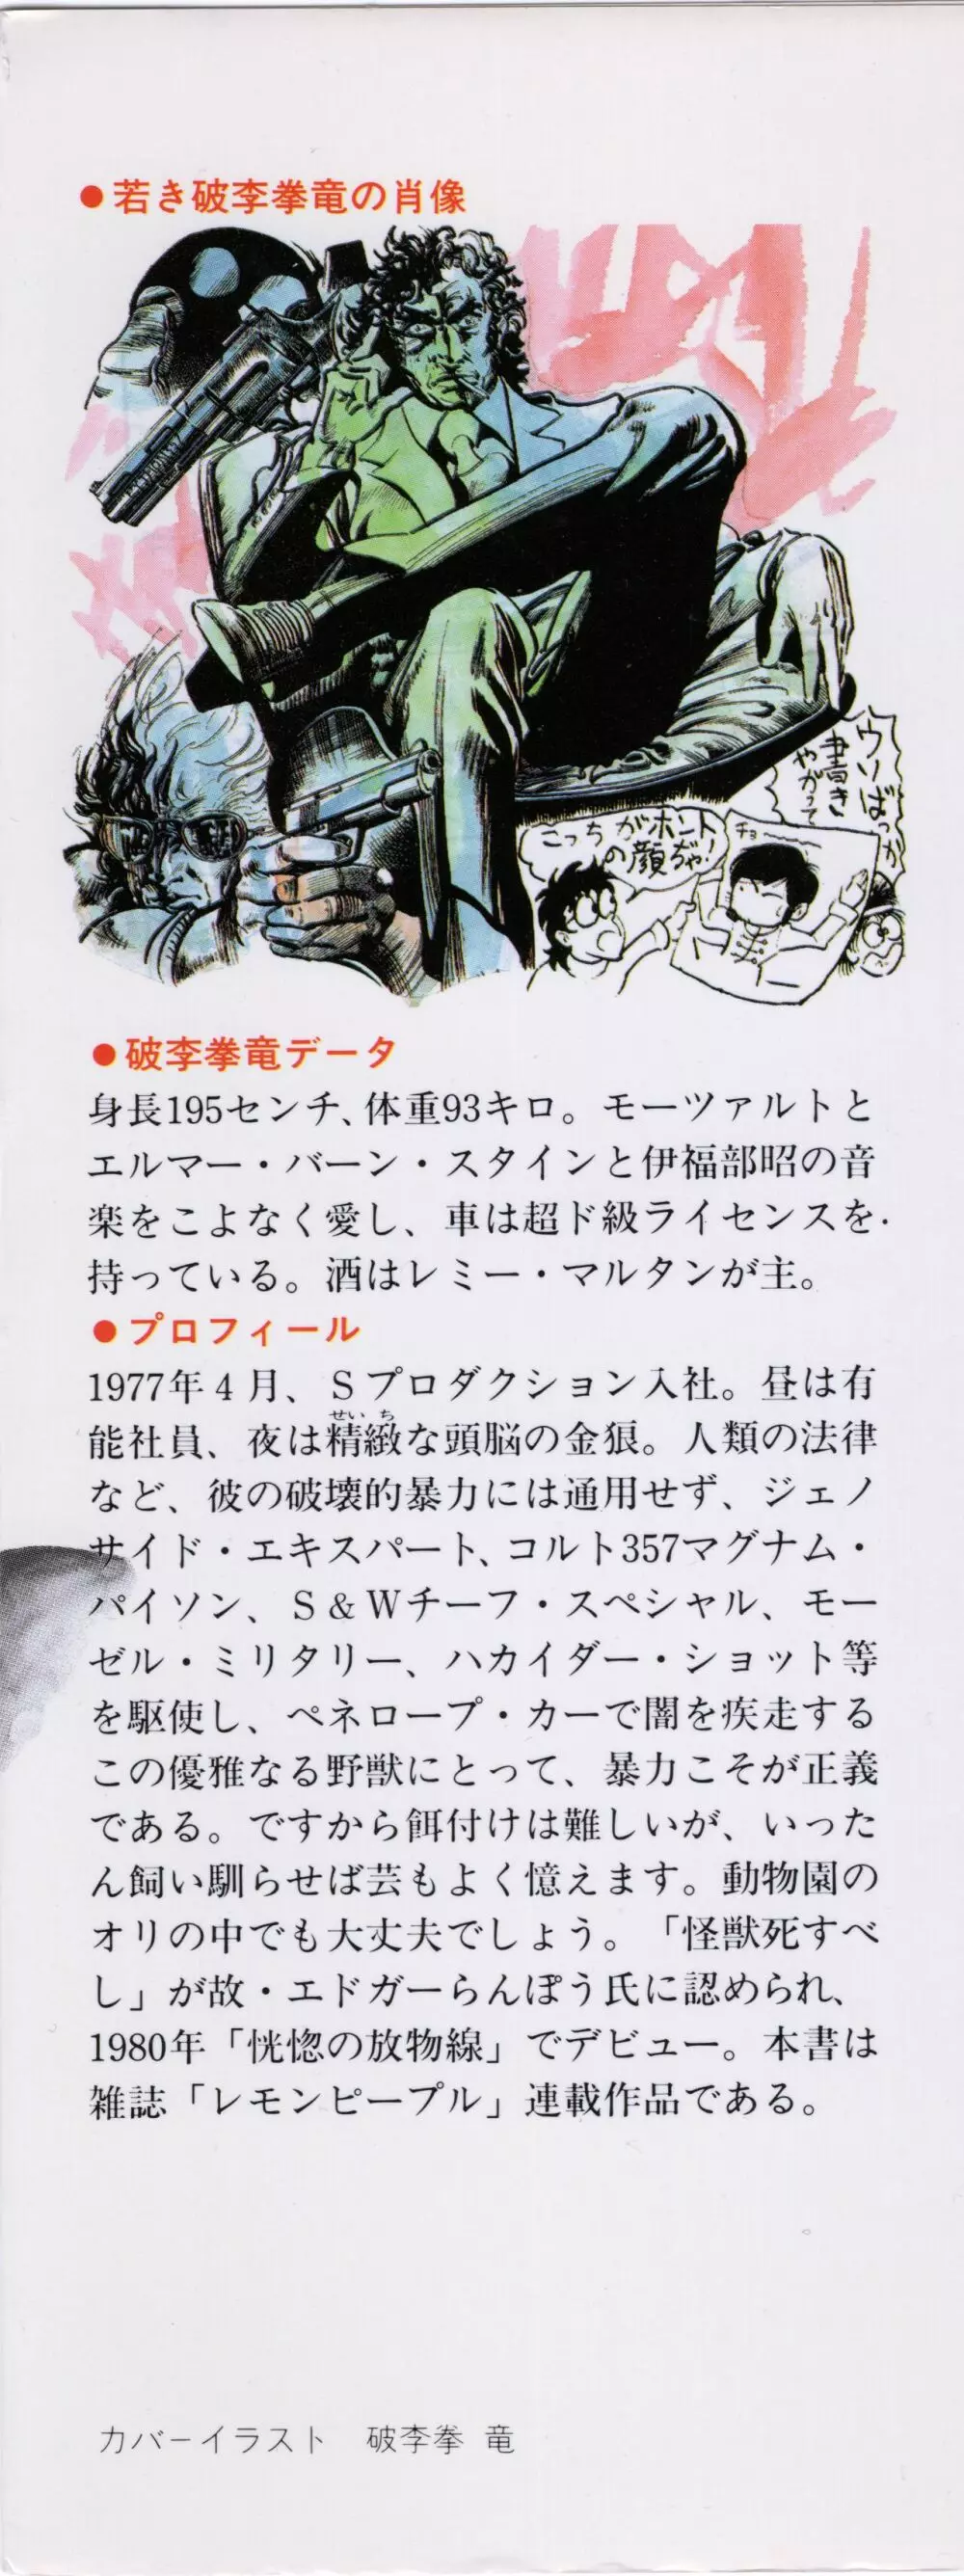 ●若き破李拳竜の肖像
ウソばっか
書き
やがって
こっちがホント
の顔ぢゃ!
チョ
●破李拳竜データ
身長195センチ、体重93キロ。モーツァルトと
エルマー・バーン・スタインと伊福部昭の音
楽をこよなく愛し、車は超ド級ライセンスを
持っている。酒はレミー・マルタンが主。
●プロフィール
1977年4月、Sプロダクション入社。昼は有
せいち
能社員、夜は精緻な頭脳の金狼。人類の法律
など、彼の破壊的暴力には通用せず、ジェノ
サイド・エキスパート、コルト357マグナム・
パイソン、S&Wチーフ・スペシャル、モー
ゼル・ミリタリー、ハカイダー・ショット等
を駆使し、ペネロープ・カーで闇を疾走する
この優雅なる野獣にとって、暴力こそが正義
である。ですから餌付けは難しいが、いった
ん飼い馴らせば芸もよく憶えます。動物園の
オリの中でも大丈夫でしょう。「怪獣死すべ
し」が故・エドガーらんぽう氏に認められ、
1980年「恍惚の放物線」でデビュー。本書は
雑誌「レモンピープル」連載作品である。
カバーイラスト　破李拳 竜